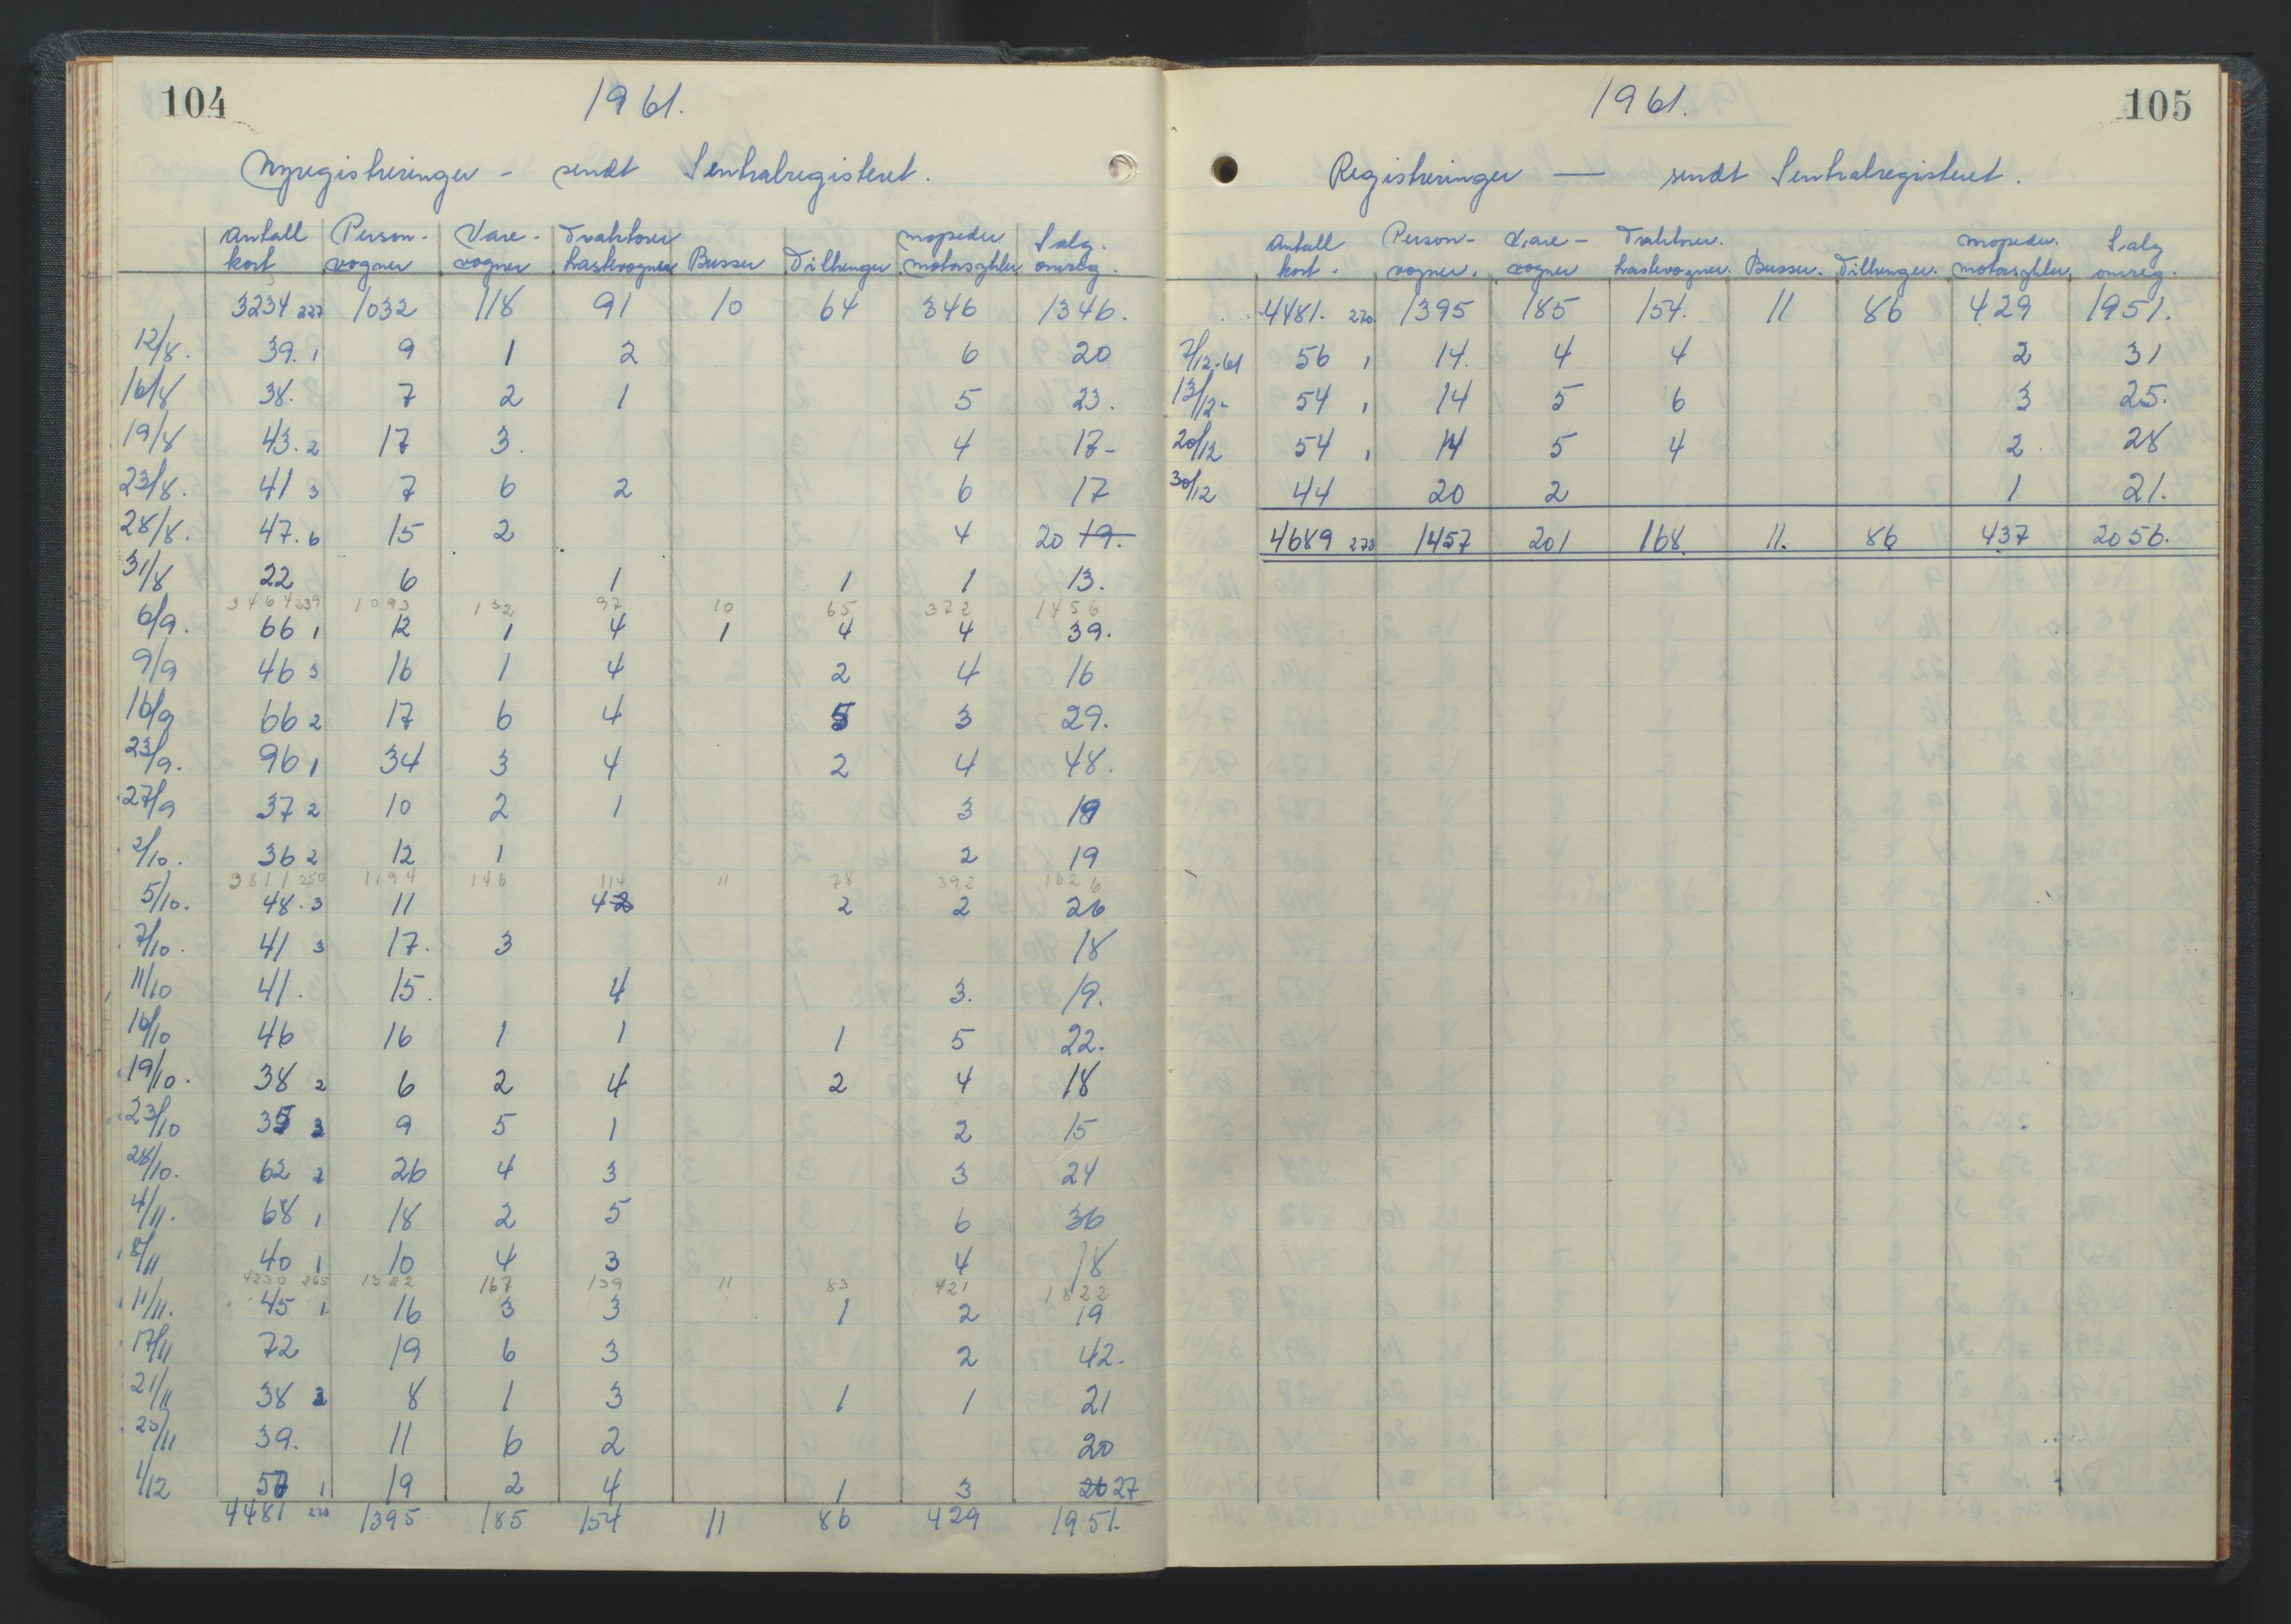 104
1961.
Nyregistreringer - sendt Sentralregisteret.
Antall Person- Vare- Traktorer mopeder Salg.
kort vogner vogner Lastevogner Busser Tilhenger motorsykler omreg.
3234 227 1032 118 91 10 64 346 1346.
12/8. 39. 1 9 1 2 6 20
16/8 38. 7 2 1 5 23.
19/8 43. 2 17 3. 4 17-
23/8. 41 3 7 6 2 6 17
28/8. 47. 6 15 2 4 20 19.
31/8 22 6 1 1 1 13.
3464 239 1093 132 97 10 65 372 1456
6/9. 66 1 12 1 4 1 4 4 39.
9/9 46 3 16 1 4 2 4 16
16/9 66 2 17 6 4 5 3 29.
23/9. 96 1 34 3 4 2 4 48.
27/9 37 2 10 2 1 3 19
2/10. 36 2 12 1 2 19
3811 250 1194 146 114 11 78 392 1626
5/10. 48. 3 11 4 2 2 26
7/10. 41 3 17. 3 18
11/10 41. 15. 4 3. 19.
16/10 46 16 1 1 1 5 22.
19/10. 38 2 6 2 4 2 4 18
23/10 35 3 9 5 1 2 15
28/10. 62 2 26 4 3 3 24
4/11. 68 1 18 2 5 6 36
8/11 40 1 10 4 3 4 18
4230 265 1322 167 139 11 83 421 1822
11/11. 45 1 16 3 3 1 2 19
17/11 72 19 6 3 2 42.
21/11 38 3 8 1 3 1 1 21
25/11 39. 11 6 2 20
1/12 57 1 19 2 4 1 3 26 27
4481 270 1395 185 154 11 86 429 1951.
105
1961.
Registreringer — sendt Sentralregisteret.
Antall Person- Vare- Traktorer. mopeder. Salg
kort. vogner. vogner Lastevogner. Busser. Tilhenger. motorsykler. omreg.
4481. 270 1395 185 154. 11 86 429 1951.
7/12-61 56 1 14. 4 4 2 31
13/12- 54 1 14 5 6 3 25.
20/12 54 1 14 5 4 2. 28
30/12 44 20 2 1 21.
4689 273 1457 201 168. 11. 86 437 2056.